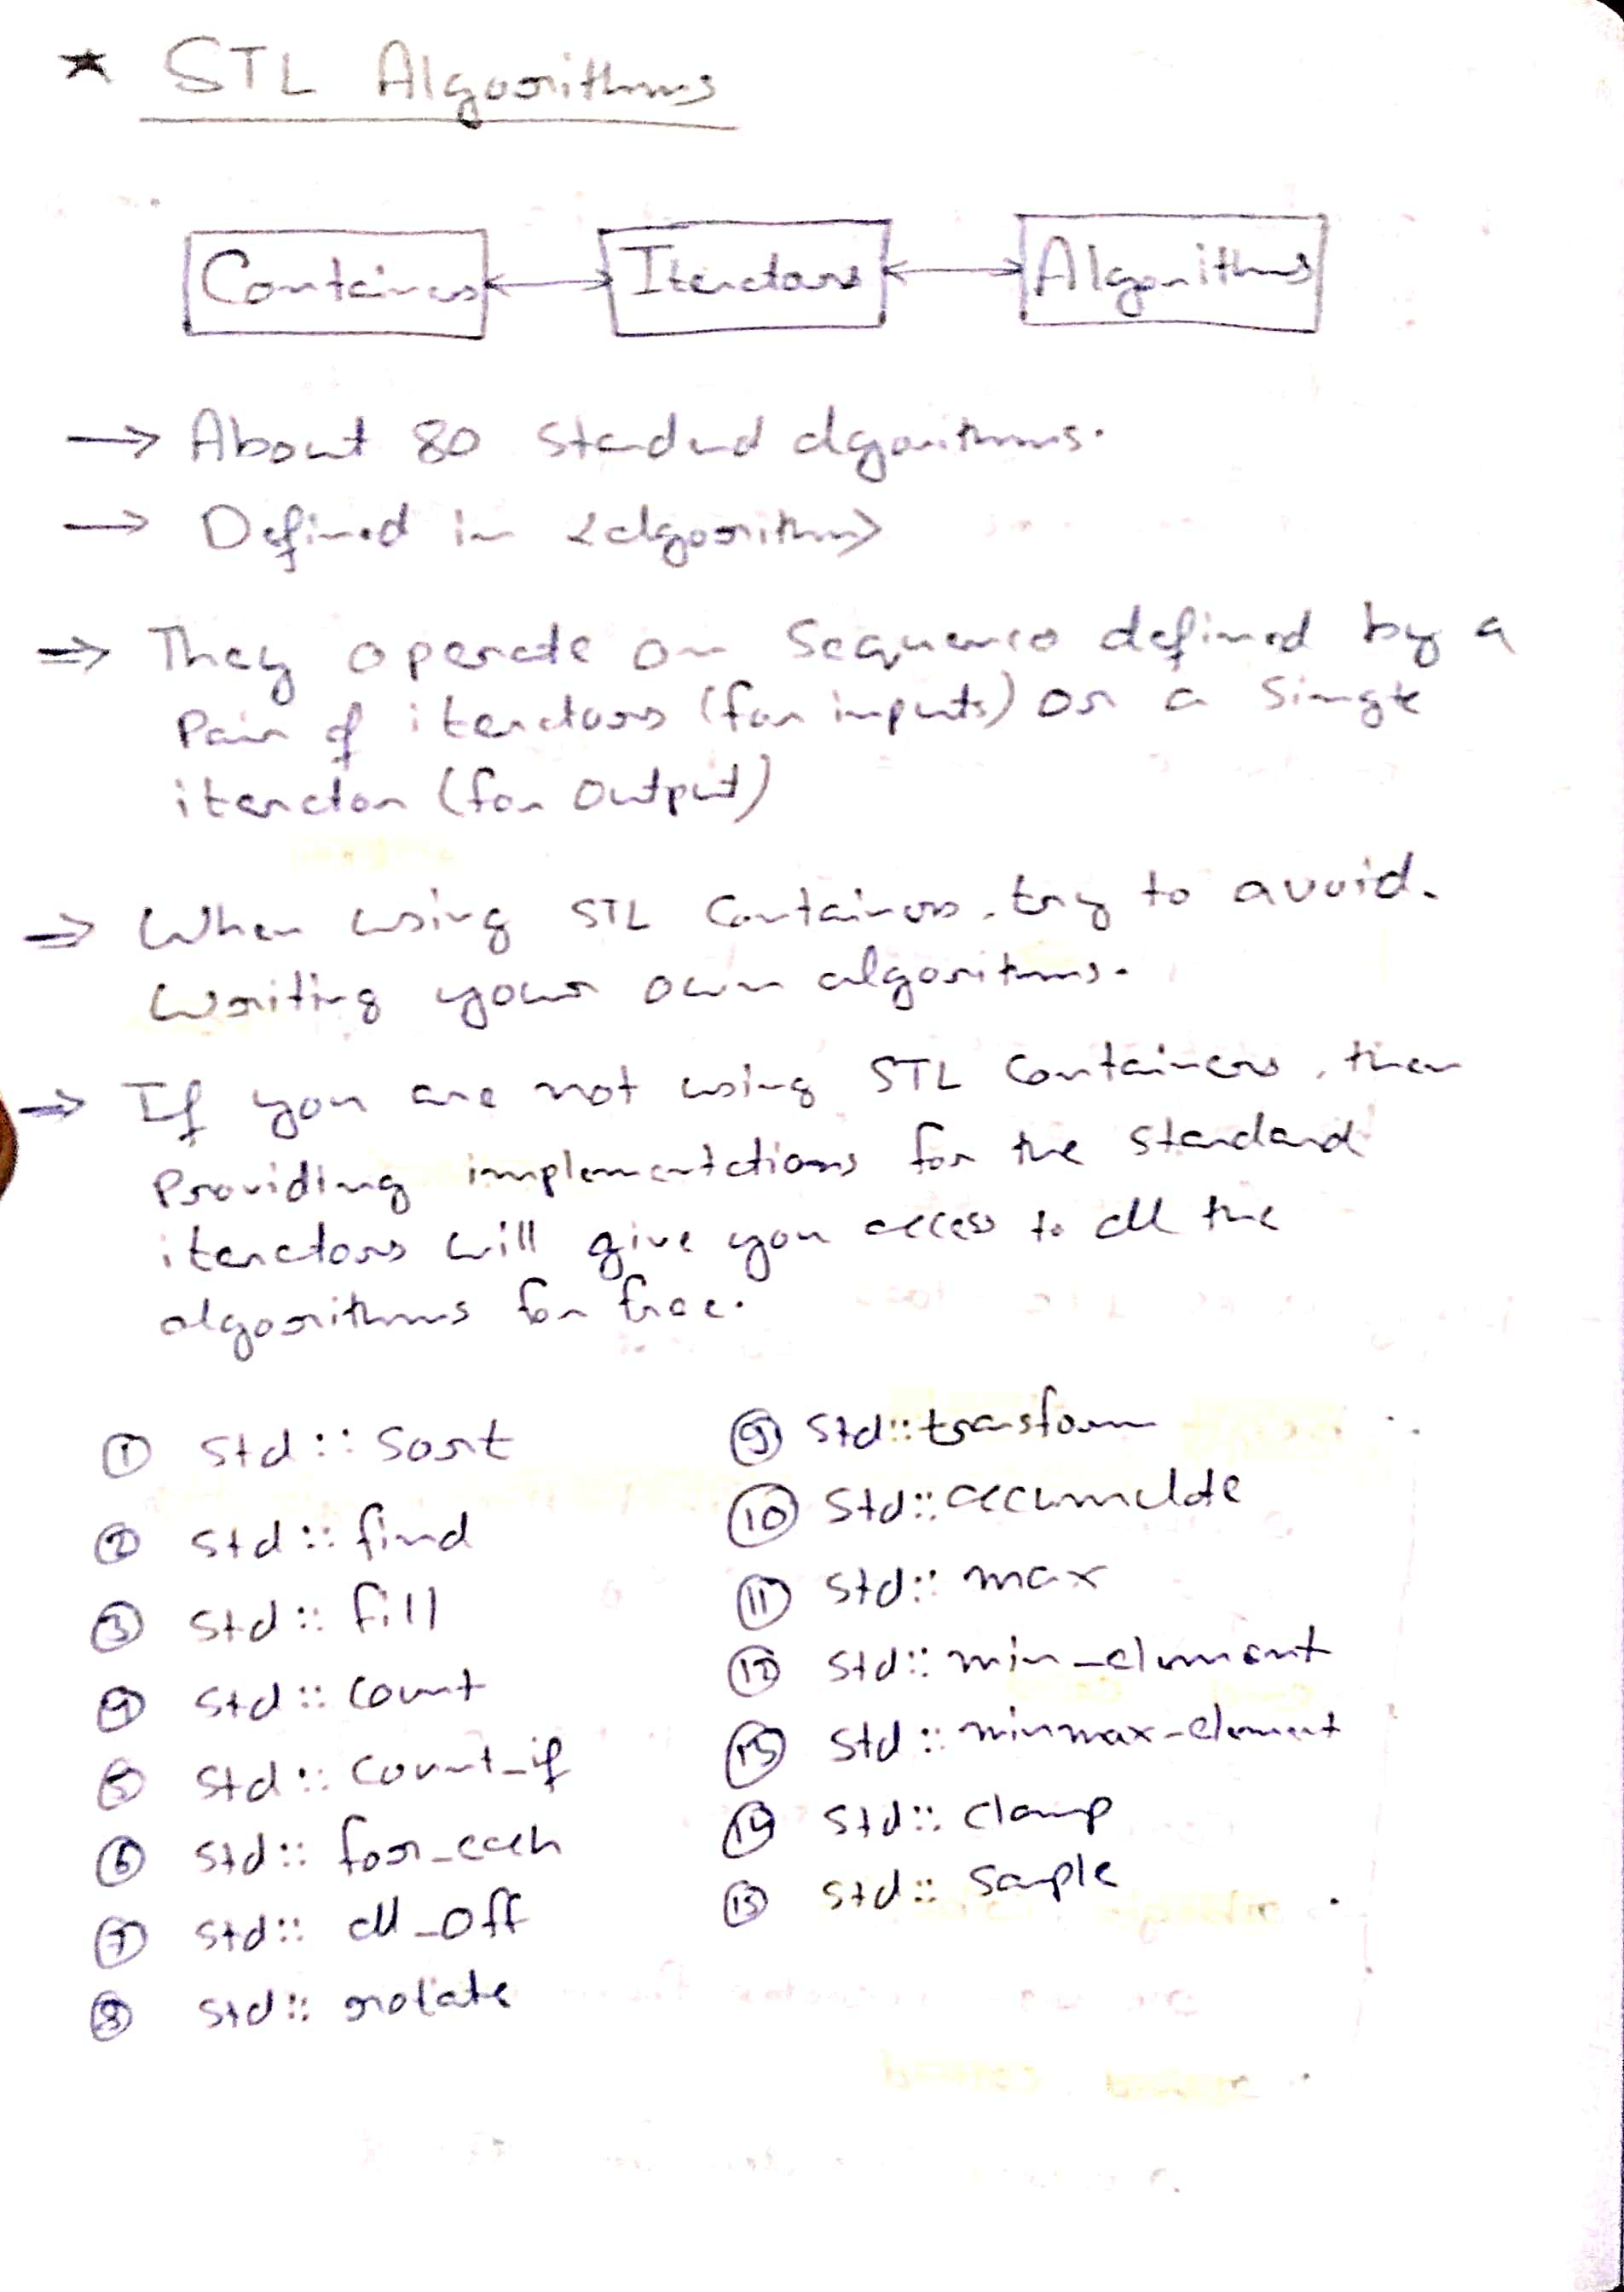 ★ STL Algorithms
Containers ↔ Iterators ↔ Algorithms
→ About 80 standard algorithms.
→ Defined in <algorithm>
⇒ They operate on sequence defined by a
pair of iterators (for inputs) or a single
iterator (for output)
⇒ When using STL containers, try to avoid.
writing your own algorithms.
⇒ If you are not using STL containers, then
providing implementations for the standard
iterators will give you access to all the
algorithms for free.
① std::sort
② std::find
③ std::fill
④ std::count
⑤ std::count_if
⑥ std::for_each
⑦ std::all_off
⑧ std::rotate
⑨ std::transform
⑩ std::accumulate
⑪ std::max
⑫ std::min_element
⑬ std::minmax_element
⑭ std::clamp
⑮ std::sample